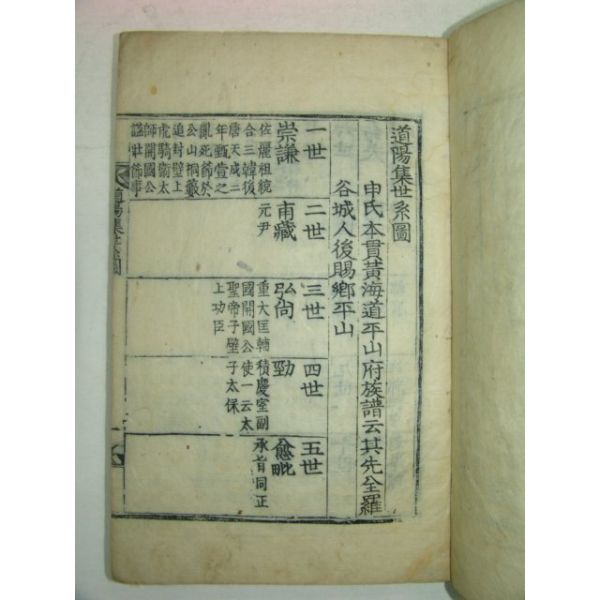 道陽集世系圖
申氏本貫黃海道平山府族譜云其先全羅
谷城人後賜鄉平山
一世
崇謙
佐麗祖統
合三韓後
唐天成二
年甄萱之
亂死節於
公山桐藪
追封壁上
虎騎衛太
師開國公
謚壯節事
二世
甫藏
元尹
三世
弘尙
重大匡輔
國開國公
聖帝子壁
上功臣
四世
勁
積慶室副
使一云太
子太保
五世
愈毗
承旨同正
道陽集世系圖